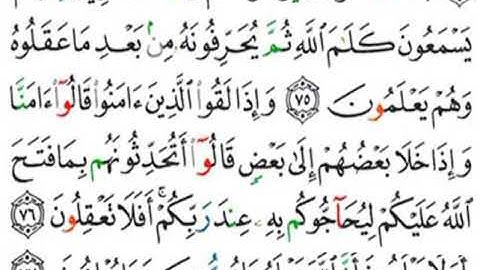 يَسْمَعُونَ كَلَٰمَ ٱللَّهِ ثُمَّ يُحَرِّفُونَهُۥ مِنۢ بَعْدِ مَا عَقَلُوهُ
وَهُمْ يَعْلَمُونَ ۝٧٥ وَإِذَا لَقُوا۟ ٱلَّذِينَ ءَامَنُوا۟ قَالُوٓا۟ ءَامَنَّا
وَإِذَا خَلَا بَعْضُهُمْ إِلَىٰ بَعْضٍ قَالُوٓا۟ أَتُحَدِّثُونَهُم بِمَا فَتَحَ
ٱللَّهُ عَلَيْكُمْ لِيُحَآجُّوكُم بِهِۦ عِندَ رَبِّكُمْ ۚ أَفَلَا تَعْقِلُونَ ۝٧٦